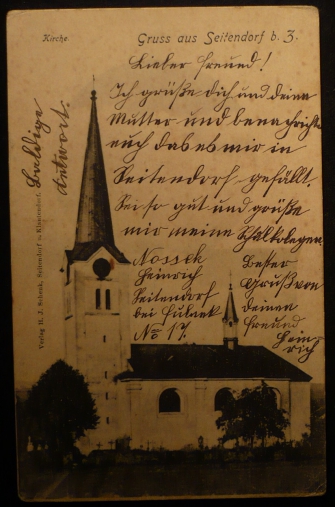 Kirche.
Gruss aus Seitendorf b. Z.
Lieber Freund!
Ich grüße dich und deine
Mutter und benagrichte
euch das es mir in
Seitendorf gefällt.
Sei so gut und grüße
mir meine Schlkolegen.
Nossek
Heinrich
Seitendorf
bei Fulnek
No 17.
Bester
Gruß von
deinen
Freund
Hein
rich
Baldige
Antwort.
Verlag H. J. Schenk, Seitendorf u. Klantendorf.